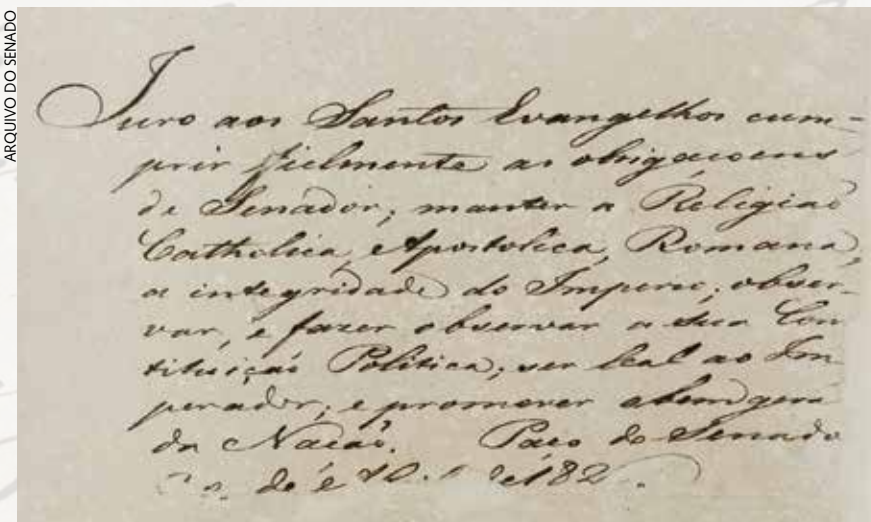 ARQUIVO DO SENADO
Juro aos Santos Evangelhos cum-
prir fielmente as obrigacoens
de Senador, manter a Religiaõ
Catholica, Apostolica, Romana,
a integridade do Imperio; obser-
var, e fazer observar a sua Con
tituiçaõ Politica; ser leal ao Im
perador; e promover o bem gera
da Nacaõ. Paço do Senado
de de 182